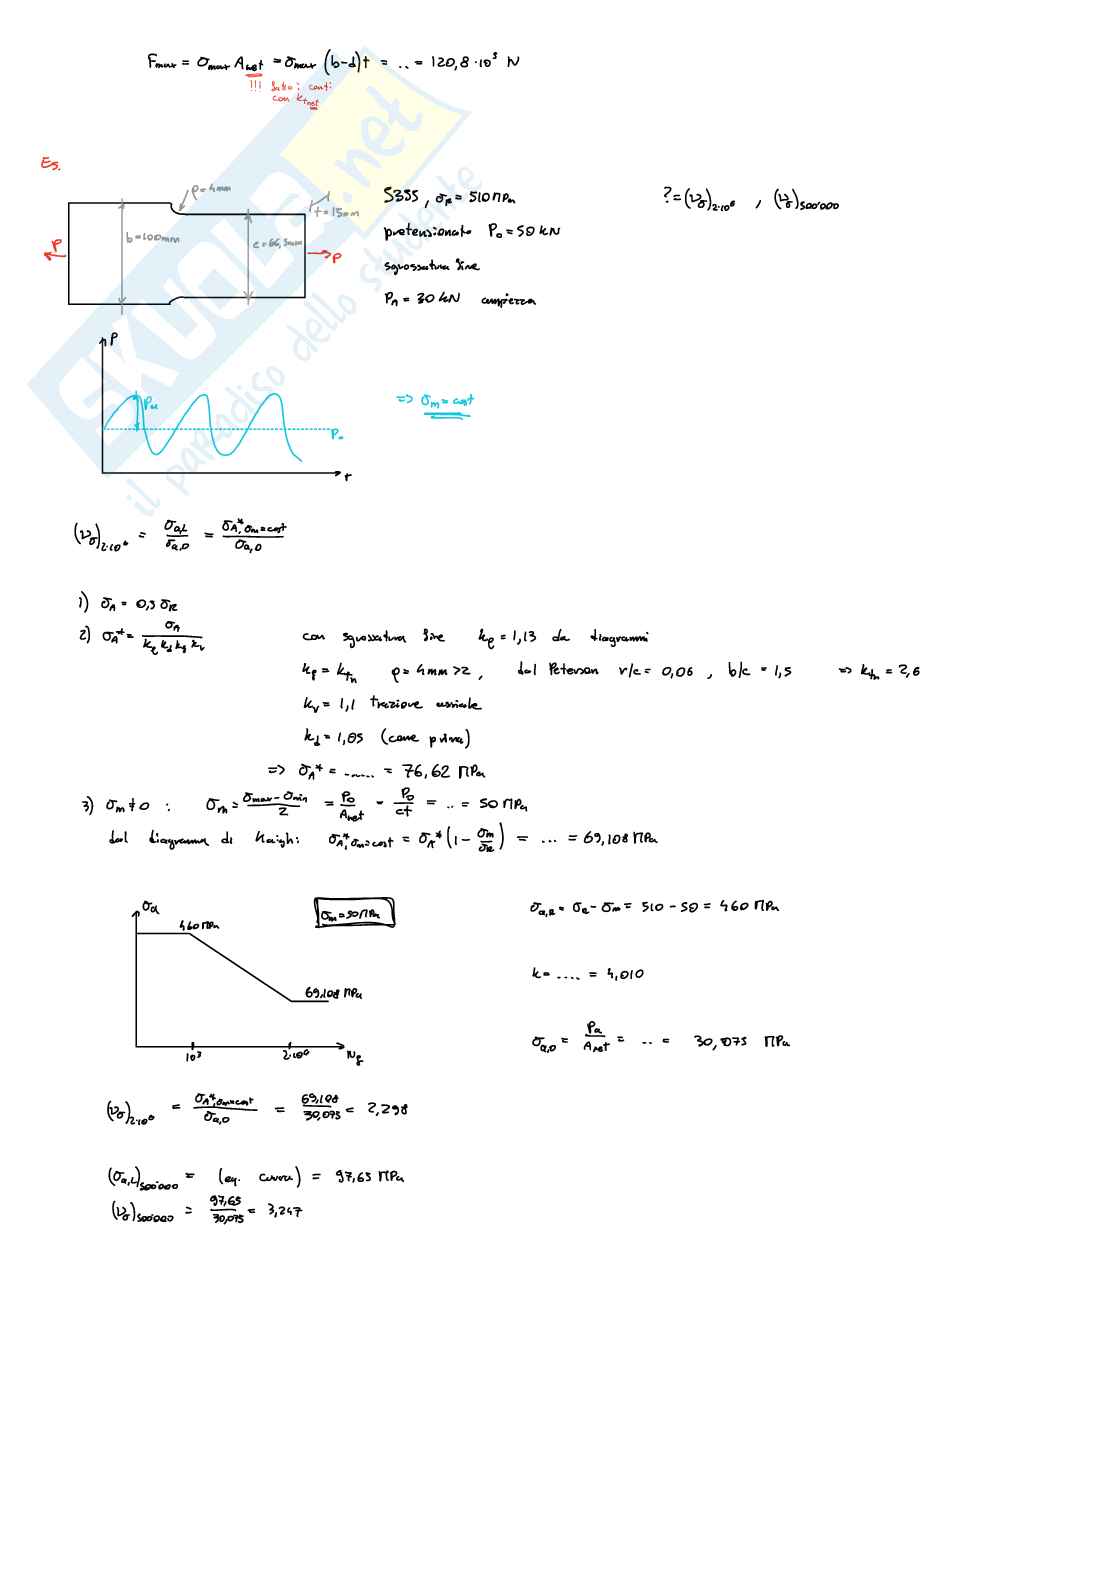 Fmax = σmax Anet = σmax (b-d)t = .. = 120,8·10³ N
!!! Satto i conti
con ktnet
Es.
ρ=4mm
t=15mm
b=100mm
c=66,5mm
P
P
S355, σR = 510 MPa
?= (νσ)2·10⁶ , (νσ)500'000
pretensionato P₀ = 50 kN
sgrossatura fine
PA = 30 kN ampiezza
P
Pa
P₀
t
=> σm = cost
(νσ)2·10⁶ = σa,L/σa,0 = σA*,σm=cost/σa,0
1) σA = 0,5 σR
2) σA* = σA/(kl kd kf kv)
con sgrossatura fine kl = 1,13 da diagrammi
kf = ktn ρ = 4mm >2, dal Peterson r/c = 0,06 , b/c = 1,5 => ktn = 2,6
kv = 1,1 trazione assiale
kd = 1,05 (come prima)
=> σA* = ...... = 76,62 MPa
3) σm ≠ 0 : σm = (σmax - σmin)/2 = P₀/Anet = P₀/ct = .. = 50 MPa
dal diagramma di Haigh: σA*,σm=cost = σA* (1 - σm/σR) = ... = 69,108 MPa
σa
460 MPa
σm = 50 MPa
69,108 MPa
10³
2·10⁶
Nf
σa,R = σR - σm = 510 - 50 = 460 MPa
k = .... = 4,010
σa,0 = Pa/Anet = .. = 30,075 MPa
(νσ)2·10⁶ = σA*,σm=cost/σa,0 = 69,108/30,075 = 2,298
(σa,L)500'000 = (eq. curva) = 97,65 MPa
(νσ)500'000 = 97,65/30,075 = 3,247
SKUOLA.net
il paradiso dello studente